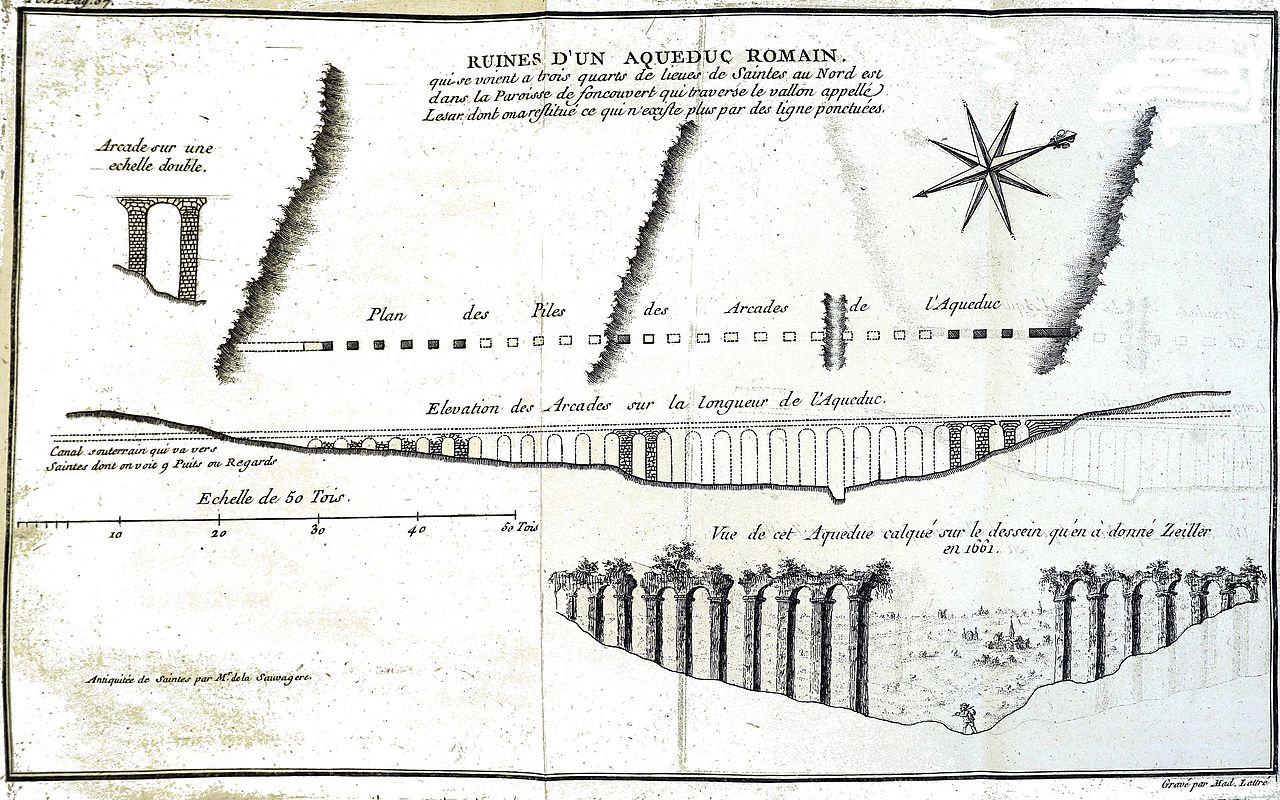 RUINES D'UN AQUEDUC ROMAIN.
qui se voient a trois quarts de lieues de Saintes au Nord est
dans la Paroisse de foncouvert qui traverse le vallon appellé
Lesar dont on a restitué ce qui n'existe plus par des ligne ponctuées.
Arcade sur une
echelle double.
Plan des Piles des Arcades de l'Aqueduc
Elevation des Arcades sur la longueur de l'Aqueduc.
Canal souterrain qui va vers
Saintes dont on voit 9 Puits ou Regards
Echelle de 50 Tois.
10 20 30 40 50 Tois
Vue de cet Aqueduc calqué sur le dessein qu'en à donné Zeiller
en 1661.
Antiquitée de Saintes par Mr. de la Sauvagere.
Gravé par Mad. Lattré